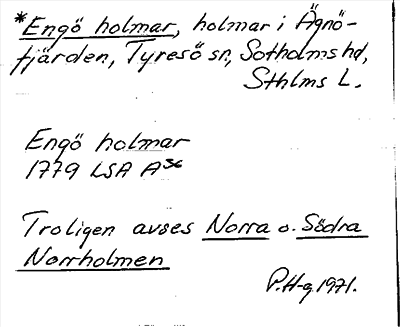 *Engö holmar, holmar i Ägnö-
fjärden, Tyresö sn, Sotholms hd,
Sthlms L.
Engö holmar
1779 LSA A36
Troligen avses Norra o. Södra
Norrholmen
P.H-g 1971.